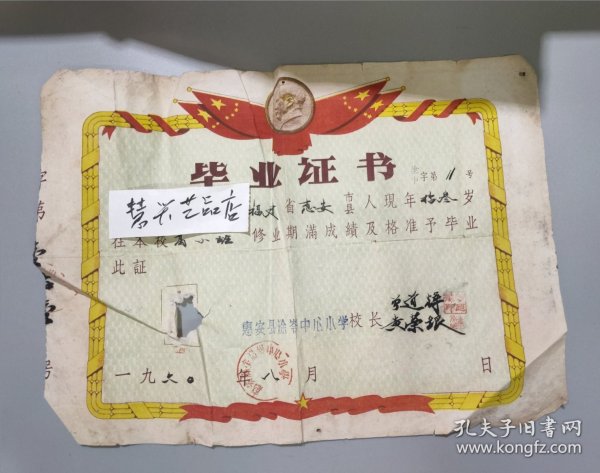 毕业证书
字第11号
慧兴艺品店
福建省惠安市县人现年拾叁岁
在本校高小班修业期满成績及格准予毕业
此証
惠安县涂岺中心小学校长
一九六〇年八月 日
字第
号
孔夫子旧书网
www.kongfz.com